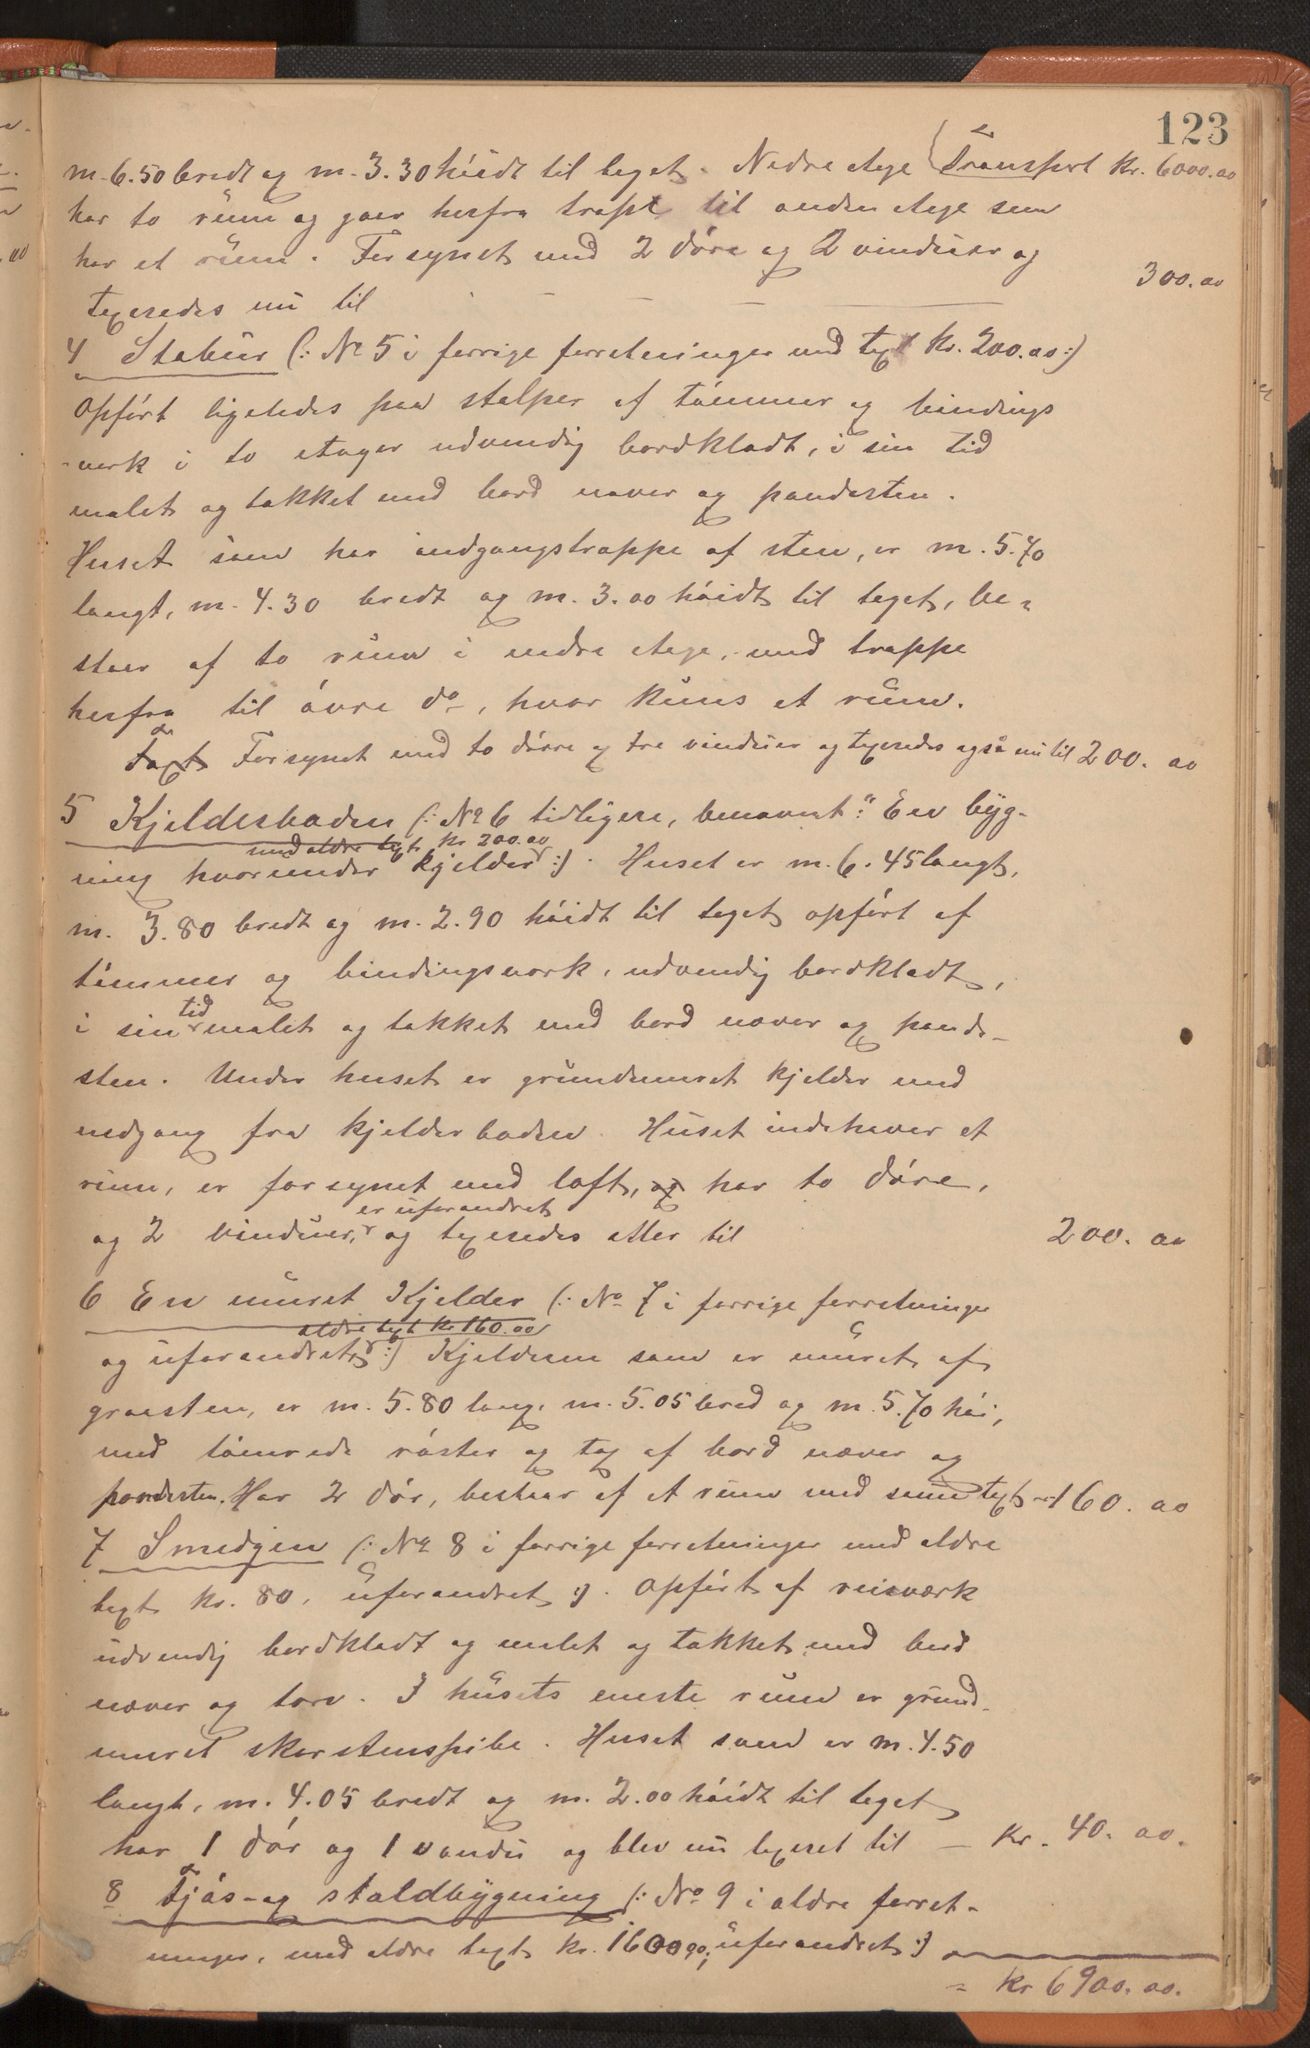 123
m. 6.50 bredt og m. 3.30 høidt til taget. Nedre etage (Transport Kr. 6000.00
har to rum og gaar herfra trape til anden etage som
har et rum. Forsynet med 2 døre og 2 vinduer og
taxeredes nu til — — — — 300.00
4 Stabur (: No 5 i forrige forretninger med taxt Kr. 200.00 :)
Opført ligeledes paa stalper af tømmer og bindings
-verk i to etager udvendig bordklædt, i sin tid
malet og takket med bord næver og pandesten.
Huset som har indgangstrappe af sten, er m. 5.70
langt, m. 4.30 bredt og m. 3.00 høidt til taget, be-
staar af to rum i nedre etage, med trappe
herfra til øvre do, hvor kuns et rum.
Taxt Forsynet med to dørre og tre vinduer og taxeredes også nu til 200.00
5 Kjelderboden (: No 6 tidligere, benævnt: "En byg-
med ældre taxt Kr 200.00
ning hvorunder kjelder :). Huset er m. 6.45 langt,
m. 3.80 bredt og m. 2.90 høidt til taget opført af
tømmer og bindingsverk, udvendig bordklædt,
i sin tid malet og takket med bord næver og pande-
sten. Under huset er grundmuret kjelder med
nedgang fra kjelderboden. Huset indehaver et
rum, er forsynet med loft, og har to døre,
er uforandret
og 2 vinduer, og taxeredes atter til 200.00
6 En muret Kjelder (: No 7 i forrige forretninger
ældre taxt Kr 160.00
og uforandret :) Kjelderen som er muret af
graasten, er m. 5.80 lang, m. 5.05 bred og m. 5.70 høi,
med tømrede røster og tag af bord næver og
pandesten. Har 2 dør, bestaar af et rum med samme taxt - 160.00
7 Smedjen (: No 8 i forrige forretninger med ældre
taxt kr. 80, uforandret :). Opført af reisværk
udvendig bordklædt og malet og takket med bord
næver og torv. I husets eneste rum er grund-
muret skorstenspibe. Huset som er m. 4.50
langt, m. 4.05 bredt og m. 2.00 høidt til taget
har 1 dør og 1 vindu og blev nu taxeret til — Kr. 40.00.
8 Fjøs- og staldbygning (: No 9 i ældre forret-
ninger, med ældre taxt kr. 1600.00, uforandret :)
= Kr 6900.00.